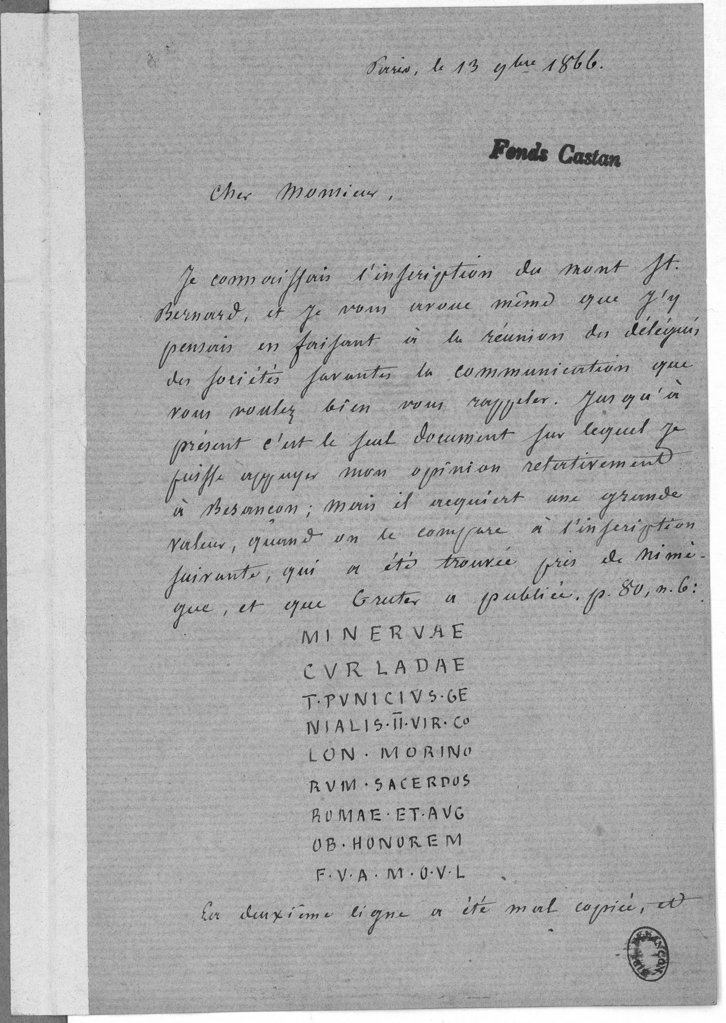 Paris, le 13 9bre 1866.
Fonds Castan
Cher Monsieur,
Je connaissais l'inscription du mont St.
Bernard, et je vous avoue même que j'y
pensais en faisant à la réunion des délégués
des sociétés savantes la communication que
vous voulez bien vous rappeler. Jusqu'à
présent c'est le seul document sur lequel je
puisse appuyer mon opinion relativement
à Besançon; mais il acquiert une grande
valeur, quand on le compare à l'inscription
suivante, qui a été trouvée près de Nimè-
gue, et que Gruter a publiée, p. 80, n. 6:
MINERVAE
CVRLADAE
T·PVNICIVS·GE
NIALIS·II·VIR·CO
LON·MORINO
RVM·SACERDOS
ROMAE·ET·AVG
OB·HONOREM
F·V·A·M·O·V·L
La deuxième ligne a été mal copiée, et
BIBL. BESANÇON